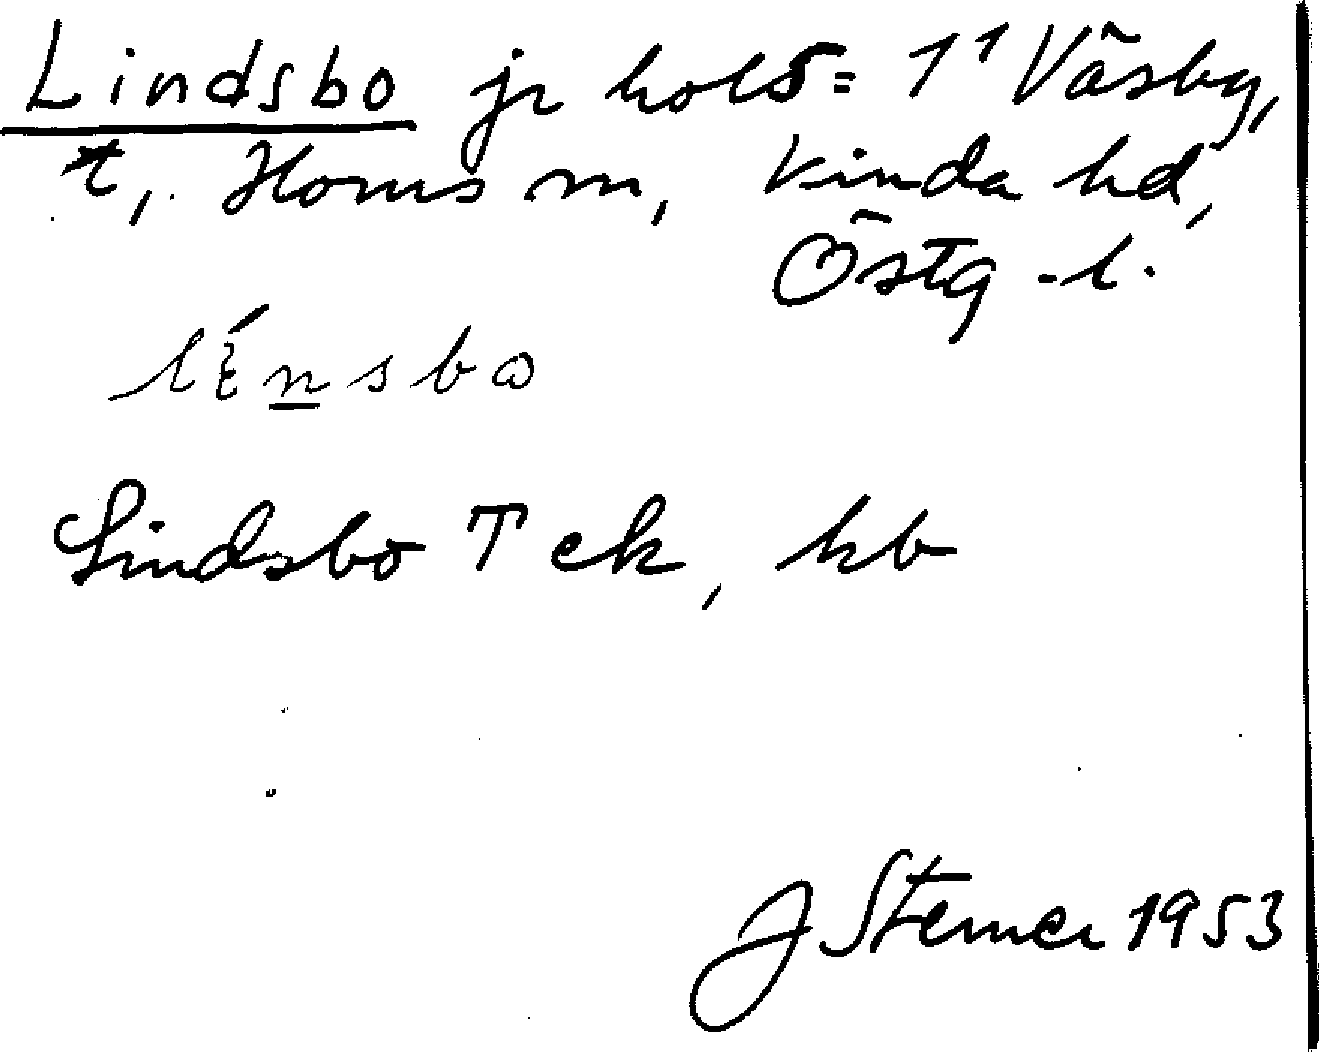 Lindsbo jr hols = 1¹ Väsby,
t, Horns sn, Kinda hd,
Östg-l.
lɛ́nsbo
Lindsbo T ek, kb
J Sterner 1953